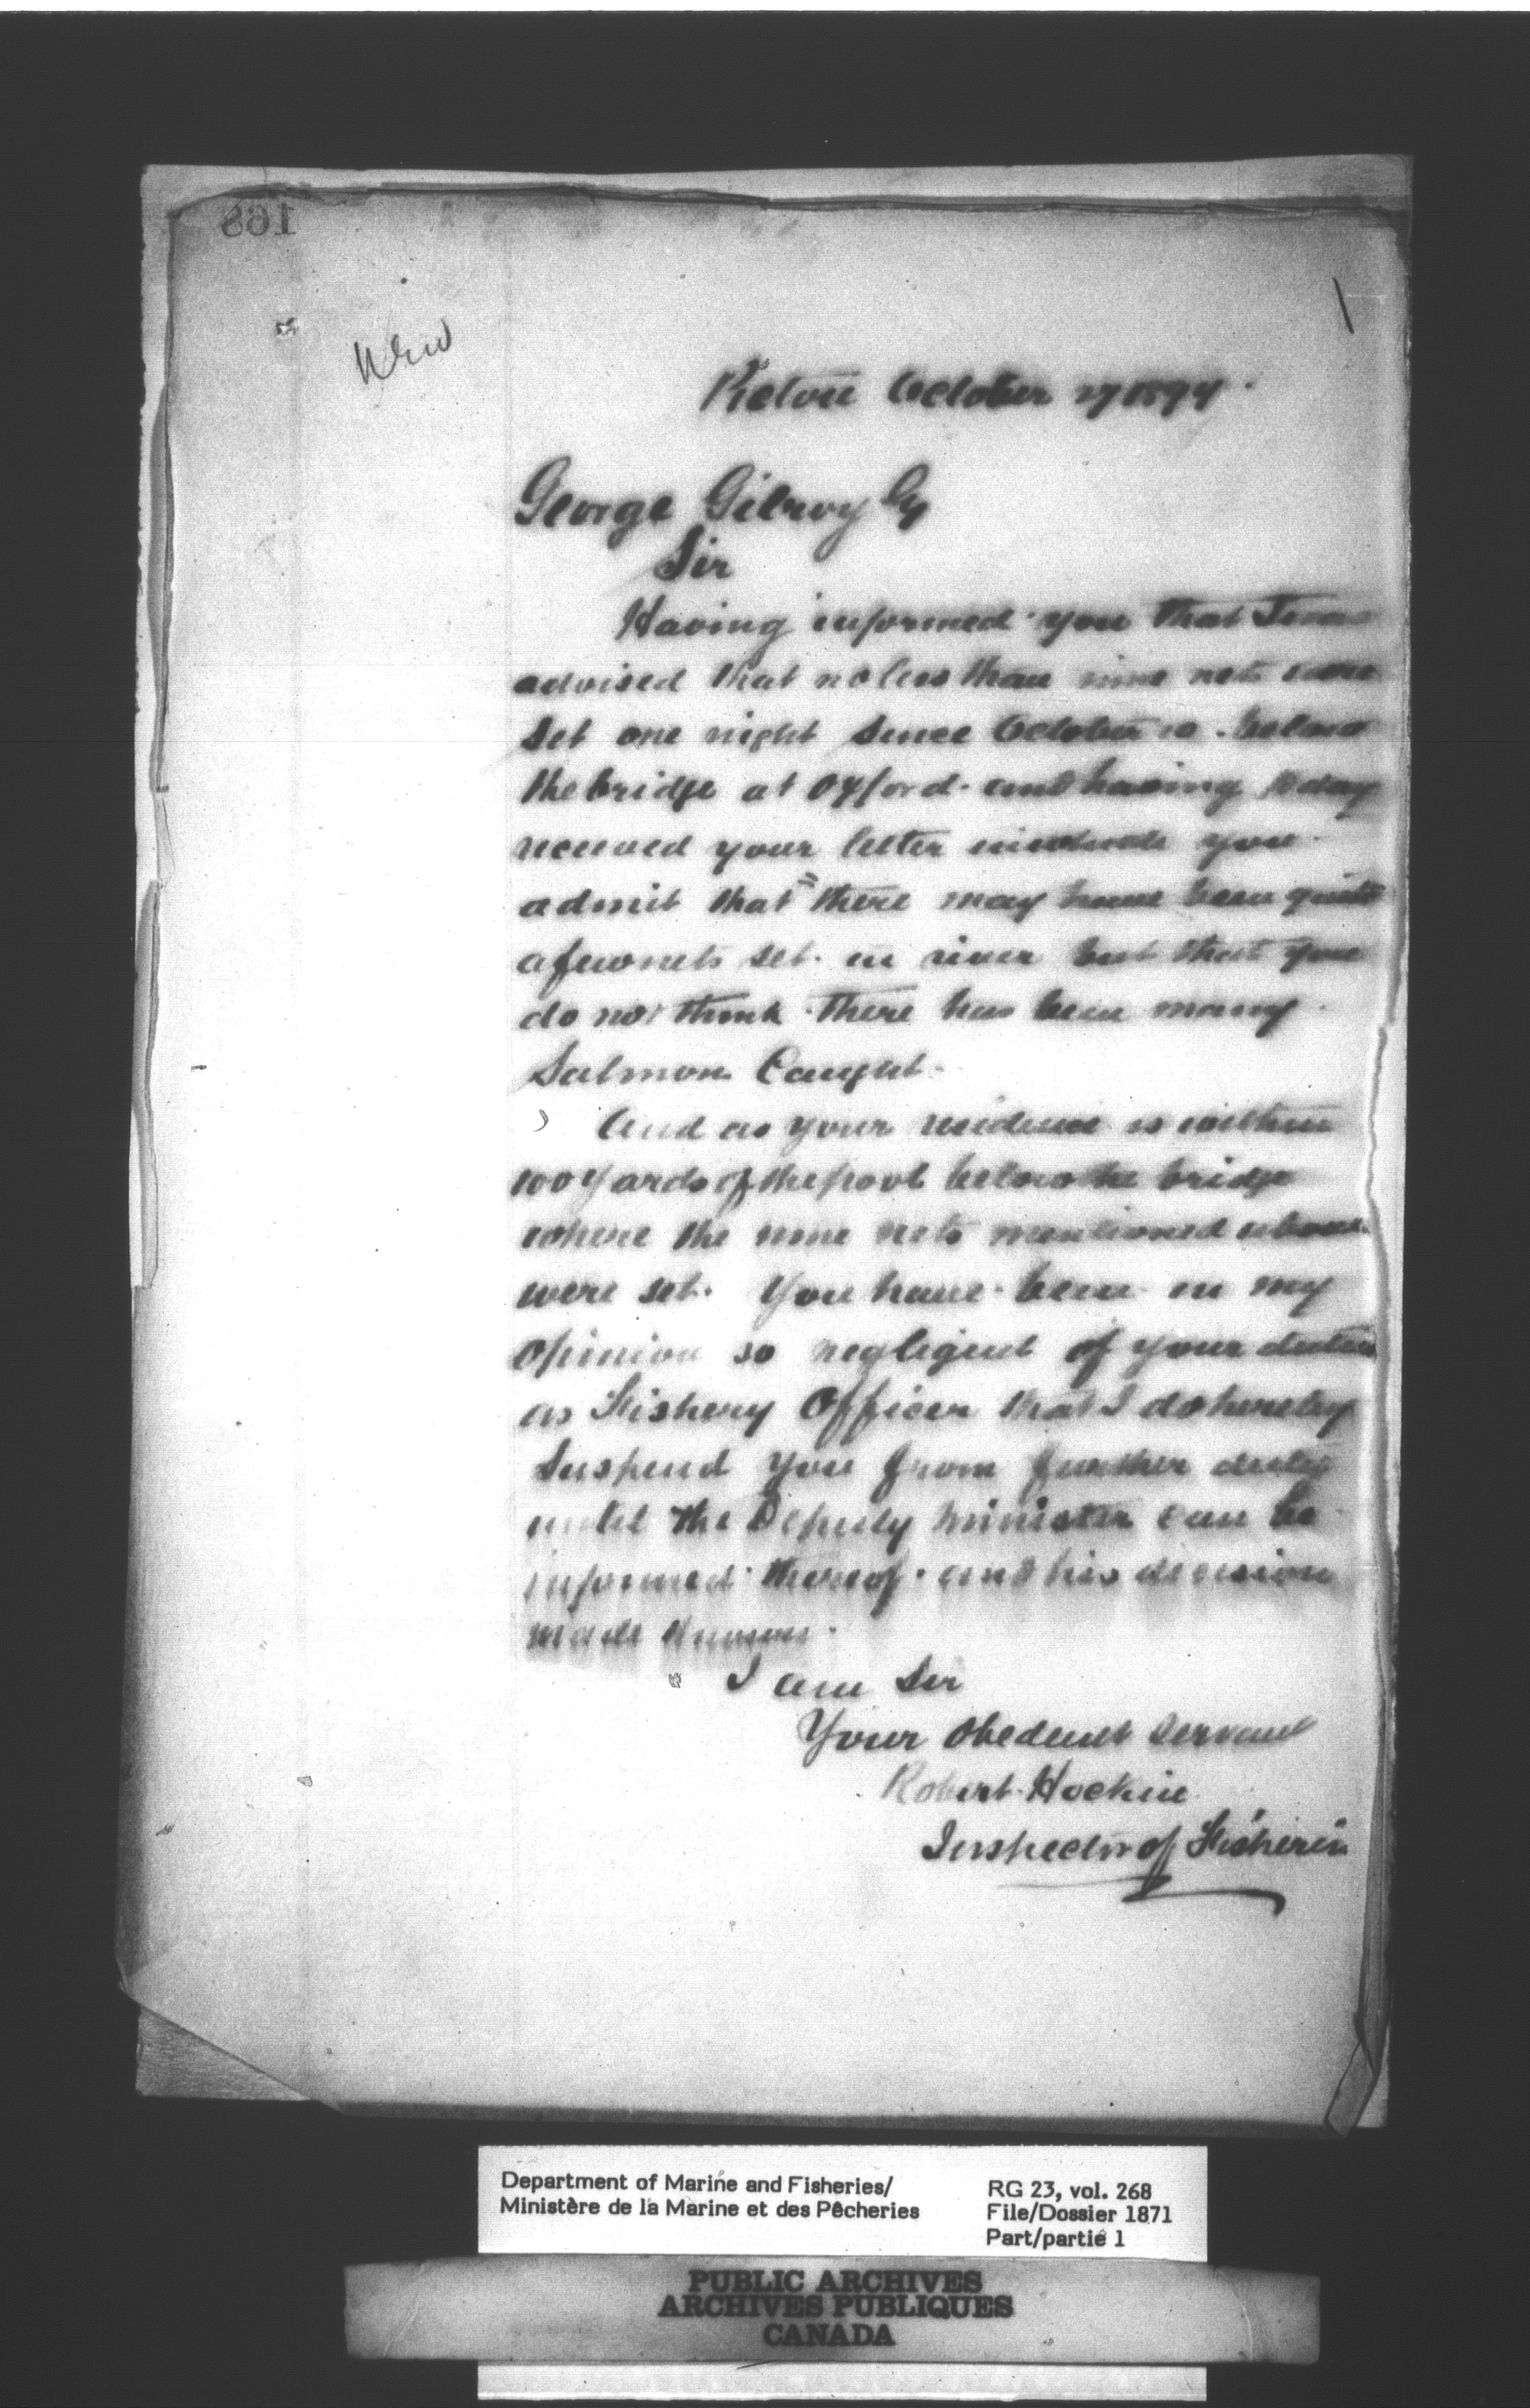 168
New
Pictou October 27 1894.
George Gilroy Esq
Sir
Having informed you that I was
advised that no less than nine nets were
set one night since October 10. below
the bridge at Oxford. and having today
received your letter in which you
admit that "there may have been quite
a few nets set in river but that you
do not think there has been many
Salmon Caught.
And as your residence is within
100 yards of the pool below the bridge
where the nine nets mentioned above
were set. You have been in my
opinion so negligent of your duties
as Fishery Officer that I do hereby
Suspend you from further duties
until the Deputy Minister can be
informed thereof. and his decision
made known.
I am Sir
Your Obedient Servant
Robert Hockin
Inspector of Fisheries
Department of Marine and Fisheries/
Ministère de la Marine et des Pêcheries
RG 23, vol. 268
File/Dossier 1871
Part/partie 1
PUBLIC ARCHIVES
ARCHIVES PUBLIQUES
CANADA